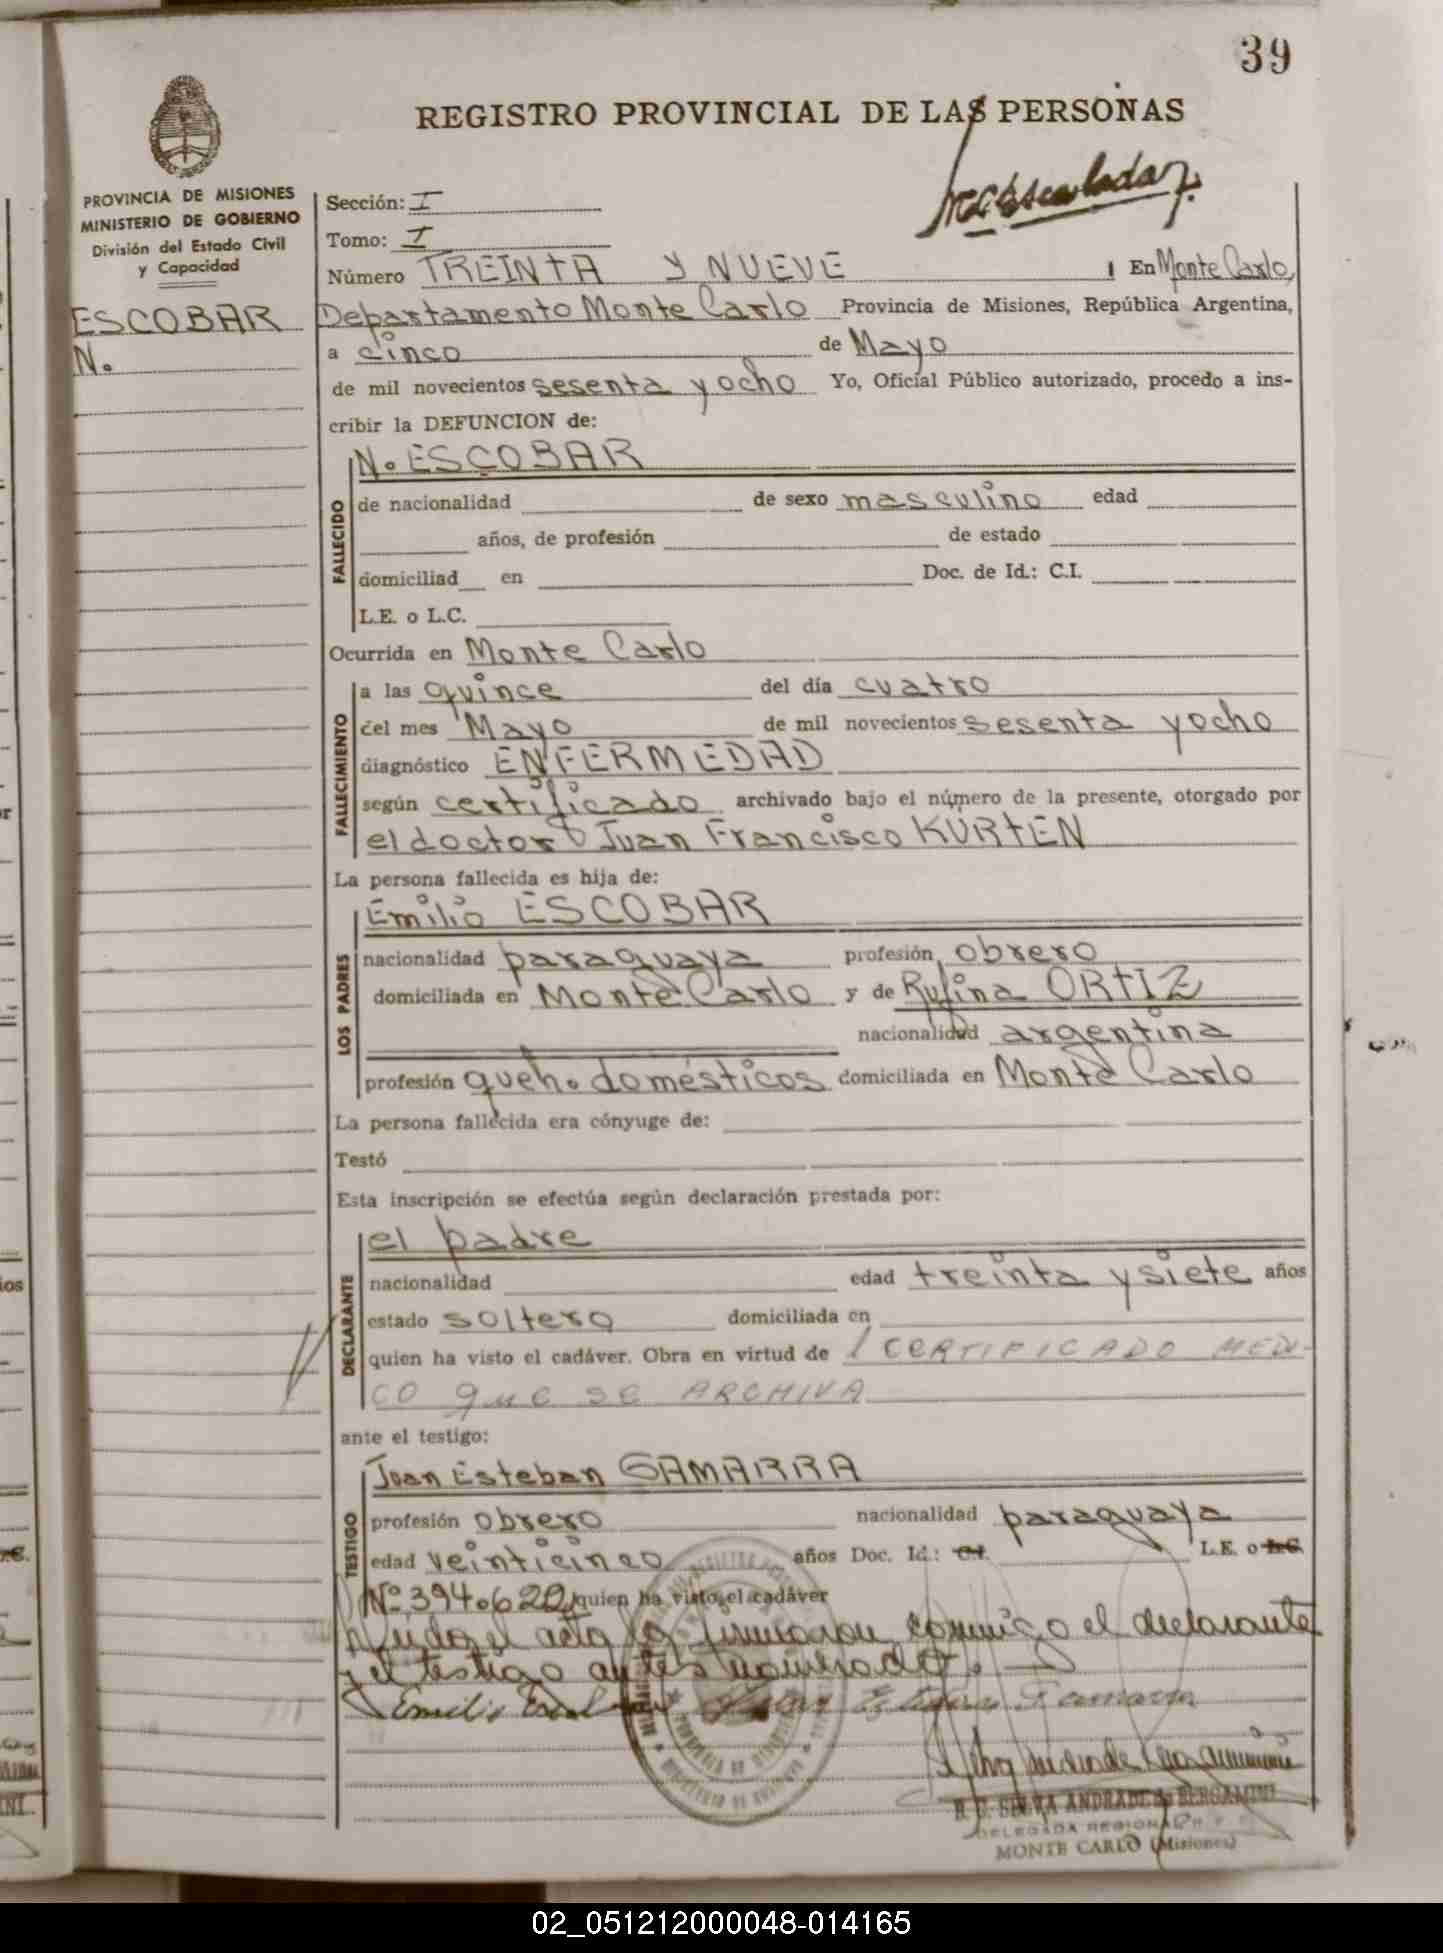 39
REGISTRO PROVINCIAL DE LAS PERSONAS
PROVINCIA DE MISIONES
MINISTERIO DE GOBIERNO
División del Estado Civil
y Capacidad
ESCOBAR
N.
Sección: I
Tomo: I
Número TREINTA Y NUEVE En Monte Carlo,
Departamento Monte Carlo Provincia de Misiones, República Argentina,
a cinco de Mayo
de mil novecientos sesenta y ocho Yo, Oficial Público autorizado, procedo a ins-
cribir la DEFUNCION de:
N. ESCOBAR
FALLECIDO
de nacionalidad de sexo masculino edad
años, de profesión de estado
domiciliad en Doc. de Id.: C.I.
L.E. o L.C.
Ocurrida en Monte Carlo
FALLECIMIENTO
a las quince del día cuatro
del mes Mayo de mil novecientos sesenta y ocho
diagnóstico ENFERMEDAD
según certificado archivado bajo el número de la presente, otorgado por
el doctor Juan Francisco KÜRTEN
La persona fallecida es hija de:
LOS PADRES
Emilio ESCOBAR
nacionalidad paraguaya profesión obrero
domiciliada en Monte Carlo y de Rufina ORTIZ
nacionalidad argentina
profesión queh. domésticos domiciliada en Monte Carlo
La persona fallecida era cónyuge de:
Testó
Esta inscripción se efectúa según declaración prestada por:
DECLARANTE
el padre
nacionalidad edad treinta y siete años
estado soltero domiciliada en
quien ha visto el cadáver. Obra en virtud de l CERTIFICADO MEDI-
CO que se ARCHIVA
ante el testigo:
TESTIGO
Juan Esteban GAMARRA
profesión obrero nacionalidad paraguaya
edad veinticinco años Doc. Id.: C.I. L.E. o L.C.
Nº 394.620 quien ha visto el cadáver
Leída el acta la firmaron conmigo el declarante
y el testigo antes nombrado.
Emilio Escobar Juan Esteban Gamarra
SELVA ANDRADE de BERGAMINI
DELEGADA REGIONAL
MONTE CARLO (Misiones)
02_051212000048-014165